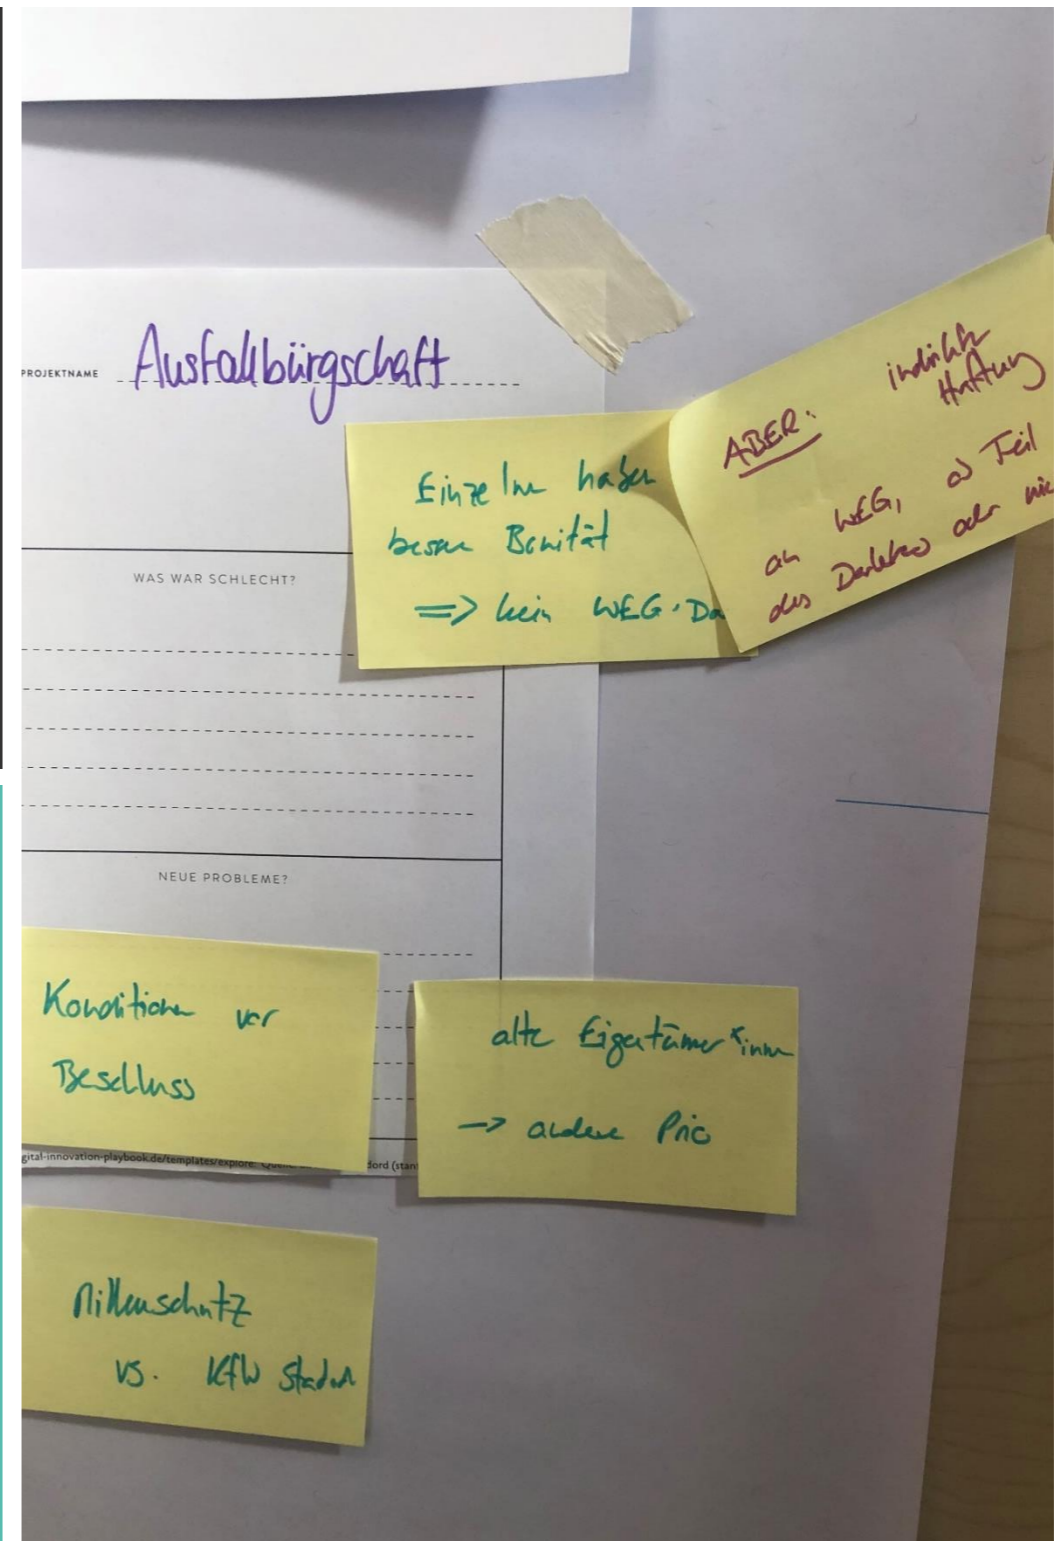 PROJEKTNAME Ausfallbürgschaft
Einzelne haben
bessere Bonität
=> kein WEG-Da
ABER: indirekte
Haftung
an WEG, ob Teil
des Darlehens oder nic
WAS WAR SCHLECHT?
NEUE PROBLEME?
Konditionen vor
Beschluss
alte Eigentümer*innen
-> andere Prio
gital-innovation-playbook.de/templates/explore.
dord (stan
vs. KfW Standard